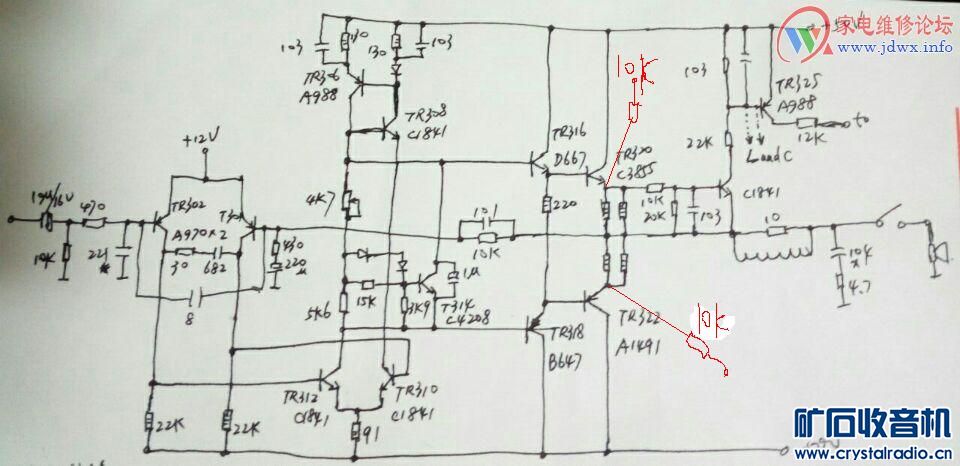 家电维修论坛
www.jdwx.info
103
130
130
103
TR306
A988
TR308
C1841
10K
103
TR325
A988
12K
to
Land C
22K
C1841
TR316
D667
TR320
C3855
+12V
470
TR302
A970×2
4K7
220
101
10K
10K
20K
103
10
104
4.7
10K
221
30
682
430
220μ
8
15K
5K6
3K9
1μ
T314
C4208
TR318
B647
TR322
A1491
10K
TR312
C1841
TR310
C1841
22K
22K
91
矿石收音机
www.crystalradio.cn